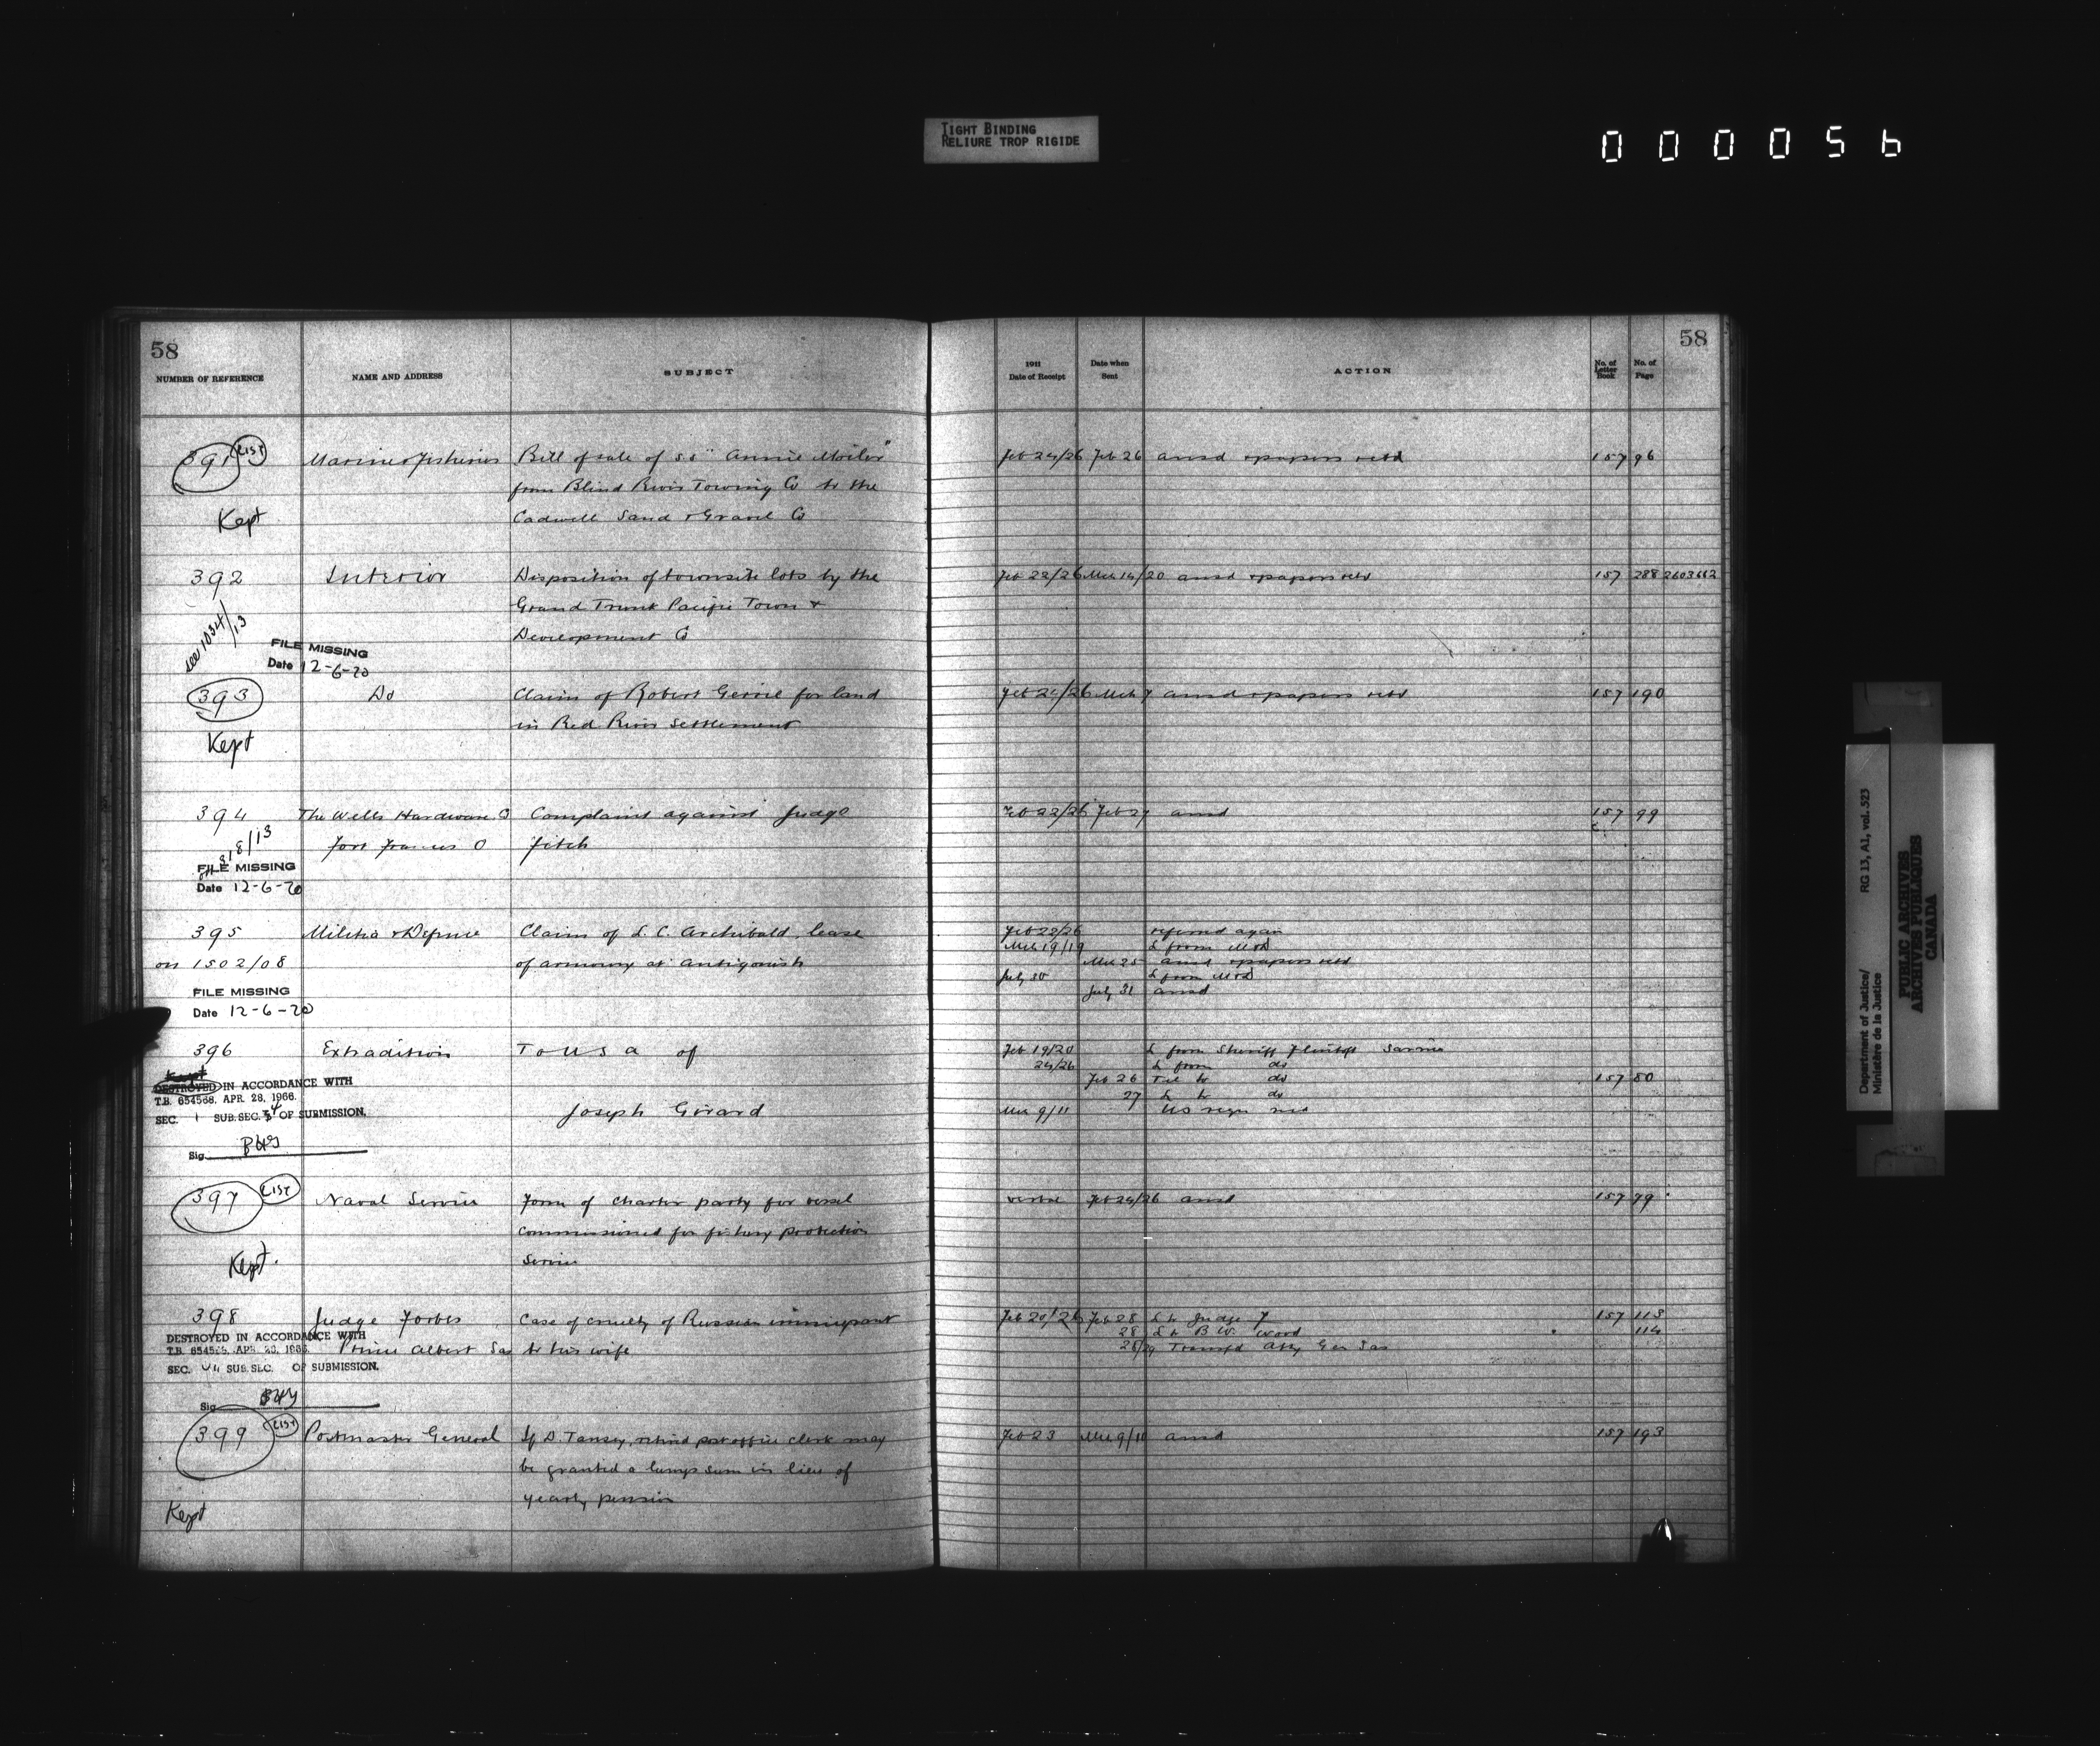 TIGHT BINDING
RELIURE TROP RIGIDE
000056
58
58
NUMBER OF REFERENCE NAME AND ADDRESS SUBJECT 1911 Date of Receipt Date when Sent ACTION No. of Letter Book No. of Page
391 LIST Marine & Fisheries Bill of sale of ss "Annie Moiles" Feb 24/26 Feb 26 ansd & papers retd 157 96
from Blind River Towing Co to the
Kept Cadwell Sand & Gravel Co
392 Interior Disposition of townsite lots by the Feb 22/26 Mch 14/20 ansd & papers retd 157 288 2603662
Grand Trunk Pacific Town &
see 1034/13 Development Co
FILE MISSING
Date 12-6-70
393 Do Claim of Robert Gerrie for land Feb 24/26 Mch 7 ansd & papers retd 157 190
in Red River Settlement
Kept
394 The Wells Hardware Co Complaint against Judge Feb 22/26 Feb 27 ansd 157 99
818/13 Fort Frances O Fitch
FILE MISSING
Date 12-6-70
395 Militia & Defence Claim of L. C. Archibald, lease Feb 22/26 referred again
Mch 19/19 L from M&D
on 1502/08 of armoury at Antigonish Mch 25 ansd & papers retd
July 30 L from M&D
FILE MISSING July 31 ansd
Date 12-6-70
396 Extradition To U S A of Feb 19/20 L from Sheriff Flintoft Sarnia
24/26 L from do
Kept Feb 26 Tel to do 157 80
DESTROYED IN ACCORDANCE WITH 27 L to do
T.B. 654568. APR. 28, 1966.
SEC. 1 SUB.SEC. 34 OF SUBMISSION. Joseph Girard Mch 9/11 US reqn recd
Sig.
397 LIST Naval Service Form of charter party for vessel verbal Feb 24/26 ansd 157 79
commissioned for fishery protection
Kept. Service
398 Judge Forbes Case of cruelty of Russian immigrant Feb 20/26 Feb 28 L to Judge F 157 113
28 L to B W Word 114
DESTROYED IN ACCORDANCE WITH
T.B. 654568. APR. 28, 1966. Prince Albert Sas to his wife 28/29 Transfd Atty Gen Sas
SEC. SUB.SEC. OF SUBMISSION.
Sig.
399 LIST Postmaster General If D. Tansey, retired post office clerk may Feb 23 Mch 9/10 ansd 157 193
be granted a lump sum in lieu of
Kept yearly pension
Department of Justice/ RG 13, A1, vol. 523
Ministère de la Justice
PUBLIC ARCHIVES
ARCHIVES PUBLIQUES
CANADA